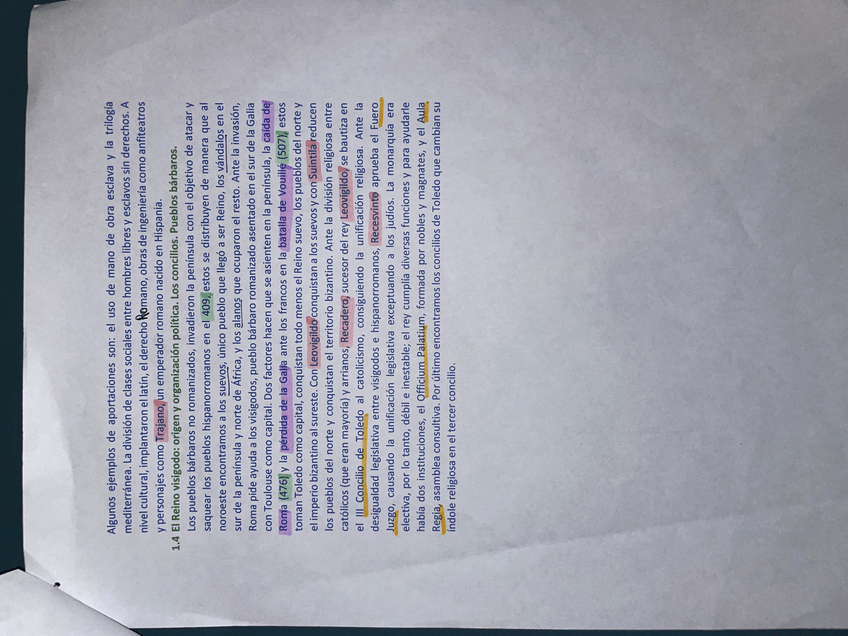 Algunos ejemplos de aportaciones son: el uso de mano de obra esclava y la trilogía
mediterránea. La división de clases sociales entre hombres libres y esclavos sin derechos. A
nivel cultural, implantaron el latín, el derecho Romano, obras de ingeniería como anfiteatros
y personajes como Trajano, un emperador romano nacido en Hispania.
1.4 El Reino visigodo: origen y organización política. Los concilios. Pueblos bárbaros.
Los pueblos bárbaros no romanizados, invadieron la península con el objetivo de atacar y
saquear los pueblos hispanorromanos en el 409, estos se distribuyen de manera que al
noroeste encontramos a los suevos, único pueblo que llegó a ser Reino, los vándalos en el
sur de la península y norte de África, y los alanos que ocuparon el resto. Ante la invasión,
Roma pide ayuda a los visigodos, pueblo bárbaro romanizado asentado en el sur de la Galia
con Toulouse como capital. Dos factores hacen que se asienten en la península, la caída de
Roma (476) y la pérdida de la Galia ante los francos en la batalla de Vouillé (507), estos
toman Toledo como capital, conquistan todo menos el Reino suevo, los pueblos del norte y
el imperio bizantino al sureste. Con Leovigildo conquistan a los suevos y con Suintila reducen
los pueblos del norte y conquistan el territorio bizantino. Ante la división religiosa entre
católicos (que eran mayoría) y arrianos, Recadero, sucesor del rey Leovigildo, se bautiza en
el III Concilio de Toledo al catolicismo, consiguiendo la unificación religiosa. Ante la
desigualdad legislativa entre visigodos e hispanorromanos, Recesvinto aprueba el Fuero
Juzgo, causando la unificación legislativa exceptuando a los judíos. La monarquía era
efectiva, por lo tanto, débil e inestable; el rey cumplía diversas funciones y para ayudarle
había dos instituciones, el Officium Palatium, formada por nobles y magnates, y el Aula
Regia, asamblea consultiva. Por último encontramos los concilios de Toledo que cambian su
índole religiosa en el tercer concilio.